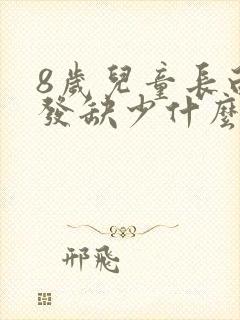 8歲兒童長
發缺少什麼
邢飛